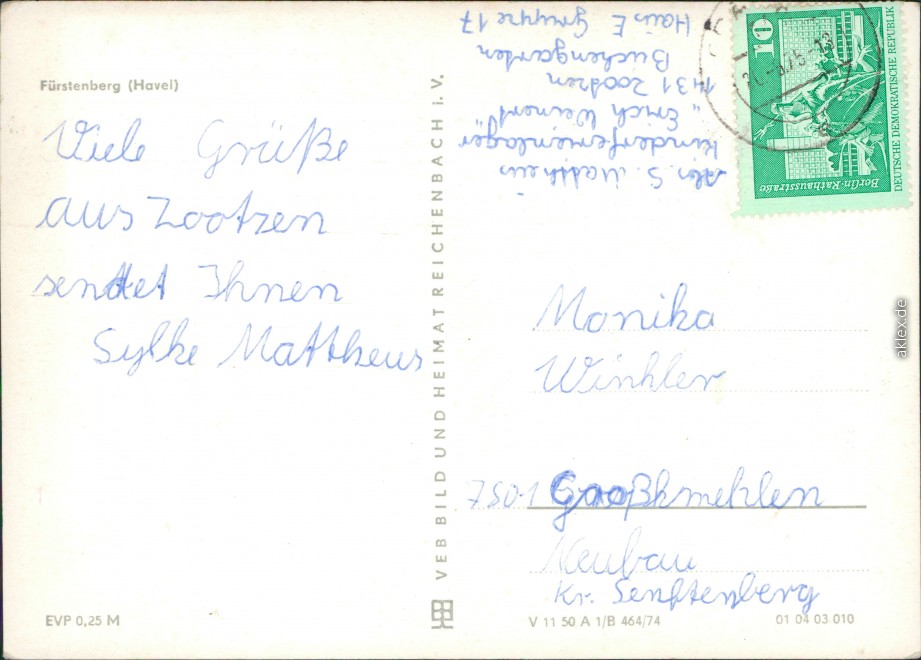 Fürstenberg (Havel)
Viele Grüße
aus Zootzen
sendet Ihnen
Sylke Mattheus
EVP 0,25 M
VEB BILD UND HEIMAT REICHENBACH i. V.
Abs S. Mattheus
Kinderferienlager
"Erich Weinert"
1431 Zootzen
Buchengarten
Haus E Gruppe 17
10
Berlin-Rathausstraße
DEUTSCHE DEMOKRATISCHE REPUBLIK
Monika
Winkler
7501 Großkmehlen
Neubau
Kr. Senftenberg
V 11 50 A 1/B 464/74
01 04 03 010
aklex.de